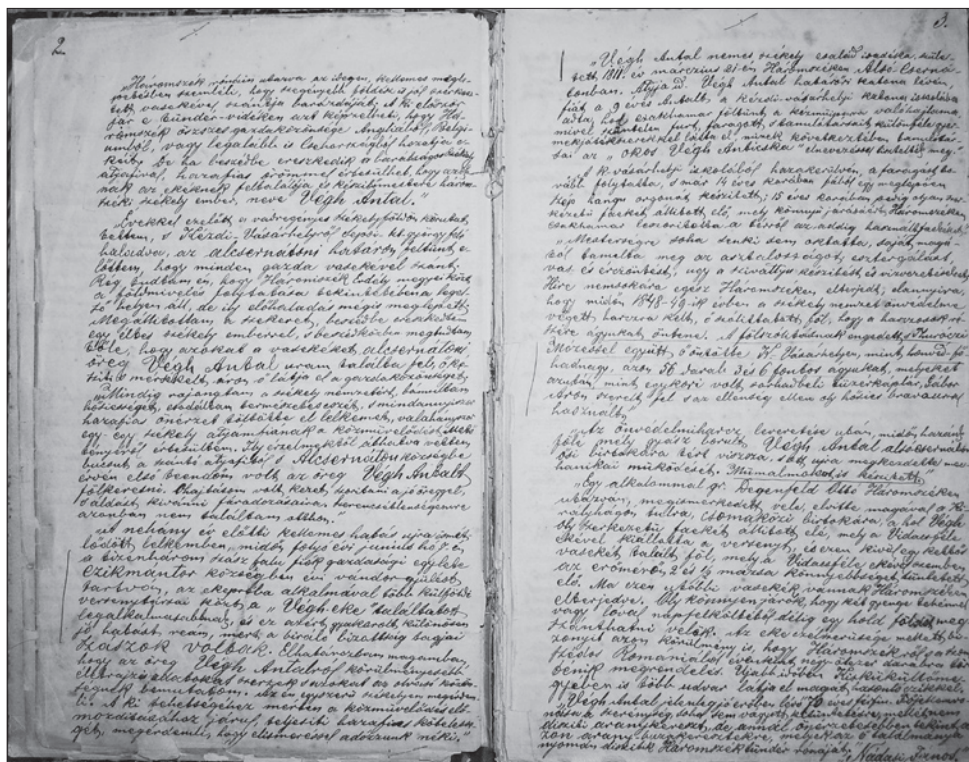 2.
„Háromszék rónáin utazva az idegen, kellemes megle-
petésben szemléli, hogy legszegényebb földész is jól szerkesz-
tett vasekével szántja barázdáját. A ki először
jár e tündér-vidéken azt képzelheti, hogy Há-
romszék összes gazdaközönsége Angliából, Belgi-
umból, vagy legalább is Csehországból hozatja e-
kéit, de ha beszédbe ereszkedik a barátságos székely
atyafival, hazafias örömmel értesülhet, hogy azok-
nak az ekéknek feltalálója és készítőmestere három-
széki székely ember, neve Végh Antal."
„Évekkel ezelőtt a vadregényes székelyföldön körutat
tettem, s Kézdi-Vásárhelyről Sepsi-Szt.györgy felé
haladva, az alcsernátoni határon feltünt e-
lőttem, hogy minden gazda vasekével szánt.
Rég tudtam én, hogy Háromszék Erdély megyéi közt
a földmivelés folytatása tekintetében a legel-
ső helyen áll, de ily előhaladás mégis meglepett.
Megállítottam a szekeret, beszédbe ereszkedtem
egy éltes székely emberrel, s beszédközben megtudtam
tőle, hogy azokat a vasekéket alcsernátoni
öreg Végh Antal uram találta fel, ő ké-
szíti s mérsékelt áron ő látja el a gazdaközönséget.
„Mindig rajongtam a székely nemzetért, bámultam
hősiességét, csodáltam természetes eszét, s mindannyiszor
hazafias önérzet töltötte el lelkemet, valahányszor
egy-egy székely atyámfiának a közmivelődési
tényéről értesültem. Ily érzelmektől áthatva vettem
bucsut a szántó atyafitól s Alcsernáton községbe
érve első teendőm volt az öreg Végh Antalt
fölkeresni. Óhajtásom volt kezet szoritani a jó öreggel,
s áldást kivánni fáradozásaira, szerencsétlenségemre
azonban nem találtam otthon."
„A nehány év előtti kellemes hatás ujra ismét-
lődött lelkemben, midőn folyó évi junius hó
a tizenhárom szász falu fiók gazdasági egylete
Czikmántor községben évi vándor-gyülést
tartván, az ekepróba alkalmával több külföldi
versenytársai közt a „Végh-eke" találtatott
legalkalmasabbnak, és ez azért gyakorolt különösen
jó hatást reám, mert a biráló bizottság tagjai
szászok voltak. Elhatároztam magamban,
hogy az öreg Végh Antalról körülményesebb
életrajzi adatokat szerzek s azokat az olvasó közön-
ségnek bemutatom. Az én egyszerű székelyem megérdem-
li. A ki tehetségéhez mérten a közmivelődés elő-
mozditásához járul, teljesiti hazafias köteles-
ségét, megérdemli, hogy elismeréssel adózzunk néki."
3.
„Végh Antal nemes székely család ivadéka, szüle-
tett 1811. év márczius 21-én Háromszéken Alsó-Cserná-
tonban. Atyja id. Végh Antal határőri katona lévén,
fiát a 9 éves Antalt a kézdi-vásárhelyi katonai iskolába
adta, hol csakhamar föltünt a kézimunkára való hajlama,
mivel szüntelen furt, faragott, s tanulótársait különféle gyer-
mekjátékszerekkel látta el, minek következtében tanulótár-
sai az „okos Végh Anticska" elnevezéssel tisztelték meg."
„A k.-vásárhelyi iskolából hazakerülvén, a faragást to-
vább folytatta, s már 14 éves korában fából egy meglepően
szép hangu orgonát készített; 15 éves korában pedig olyan szer-
kezetü faekét állitott elő, mely könnyü járásáért Háromszéken
csakhamar leszoritotta a térről az addig használt faekéket."
„Mesterségre soha senki sem oktatta, saját magá-
tól tanulta meg az asztalosságot, esztergálást,
vas és érczöntést, ugy a szivattyu készitést és vizvezetéseket.
Hire nemsokára egész Háromszéken elterjedt; elannyira,
hogy midőn 1848-49-ik évben a székely nemzet önvédelme
végett harczra kelt, ő szólittatott föl, hogy a harczosok ré-
szére ágyukat öntene. A fölszólitásnak engedett, s Turóczi
Mózessel együtt ő öntötte K.-Vásárhelyen, mint honvéd fő-
hadnagy, azon 36 darab 3 és 6 fontos ágyukat, melyeket
azután, mint egykori volt szabadbeli tüzérkáplár, Gábor
Áron szerelt fel s az ellenség ellen oly hősies bravourral
használt."
„Az önvédelmiharcz leveretése után, midőn hazánk
fölé mély gyász borult, Végh Antal alsócsernátoni
ősi birtokára tért vissza, s ott ujra megkezdette me-
chanikai müködését. Malmokat is készitett."
„Egy alkalommal gr. Degenfeld Ottó Háromszéken
utazván, megismerkedett vele, elvitte magával a Ki-
rályhágón tulra, csomaközi birtokára, a hol Végh
oly szerkezetü faekét állitott elő, mely a Vidacsféle
ekével kiállotta a versenyt, és ezen kivül egy kettős
vasekét talált föl, mely a Vidacsféle ekével szemben
az erőmérőn 2 és ½ mázsa könnyebbséget tüntetett
elő. Ma ezen utóbbi vasekék vannak Háromszéken
elterjedve. Oly könnyen járók, hogy két gyenge tehénnel
vagy lóval napfelköltétől délig egy hold földet meg
szánthatni velök. Az eke czélszerüsége mellett bi-
zonyit azon körülmény is, hogy Háromszékről s a szom-
szédos Romániából évenként négy-ötszáz darabra tör-
ténik megrendelés. Ujabb időben Kisküküllőme-
gyében is több udvar látja el magát hasonló ekékkel.
„Végh Antal jelenleg jó erőben lévő 70 éves férfiu. Teljesen az
a szerénység, soha sem vágyott kitüntetésre, mellét nem
disziti aranykereszt, de annál önérzetesebben tekint a-
zon arany buzakeresztekre, melyek az ő találmánya
nyomán diszitik Háromszék tündér rónáját." Nádasi János.